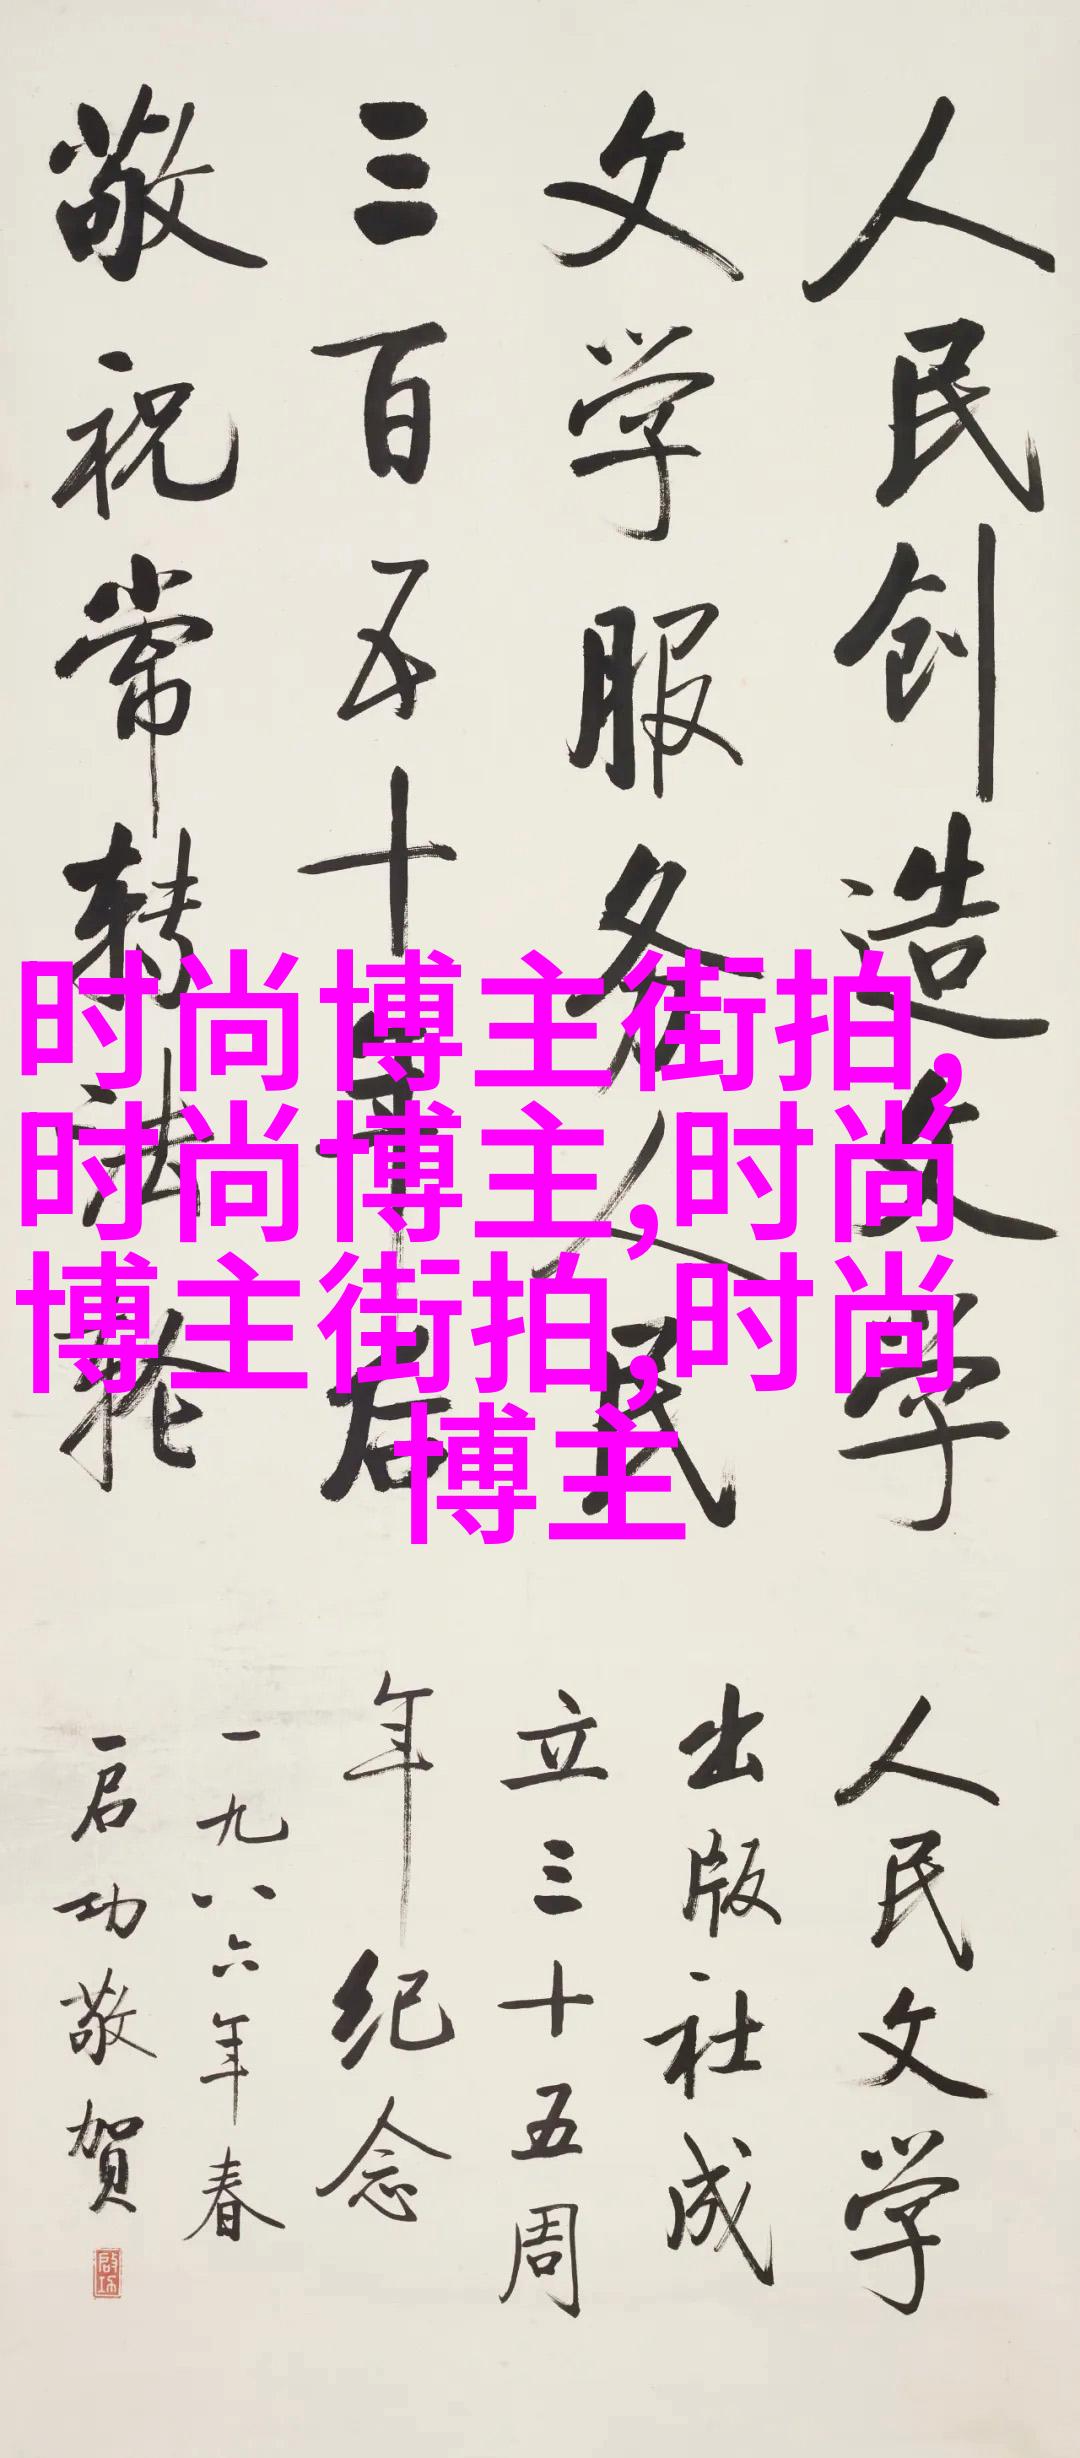 人民创造文学
文学服务人民
三百五十年后
敬祝常转法轮
人民文学
出版社成
立三十五周
年纪念
一九八六年春
启功敬賀
启功
时尚博主街拍,
时尚博主,时尚
博主街拍,时尚
博主